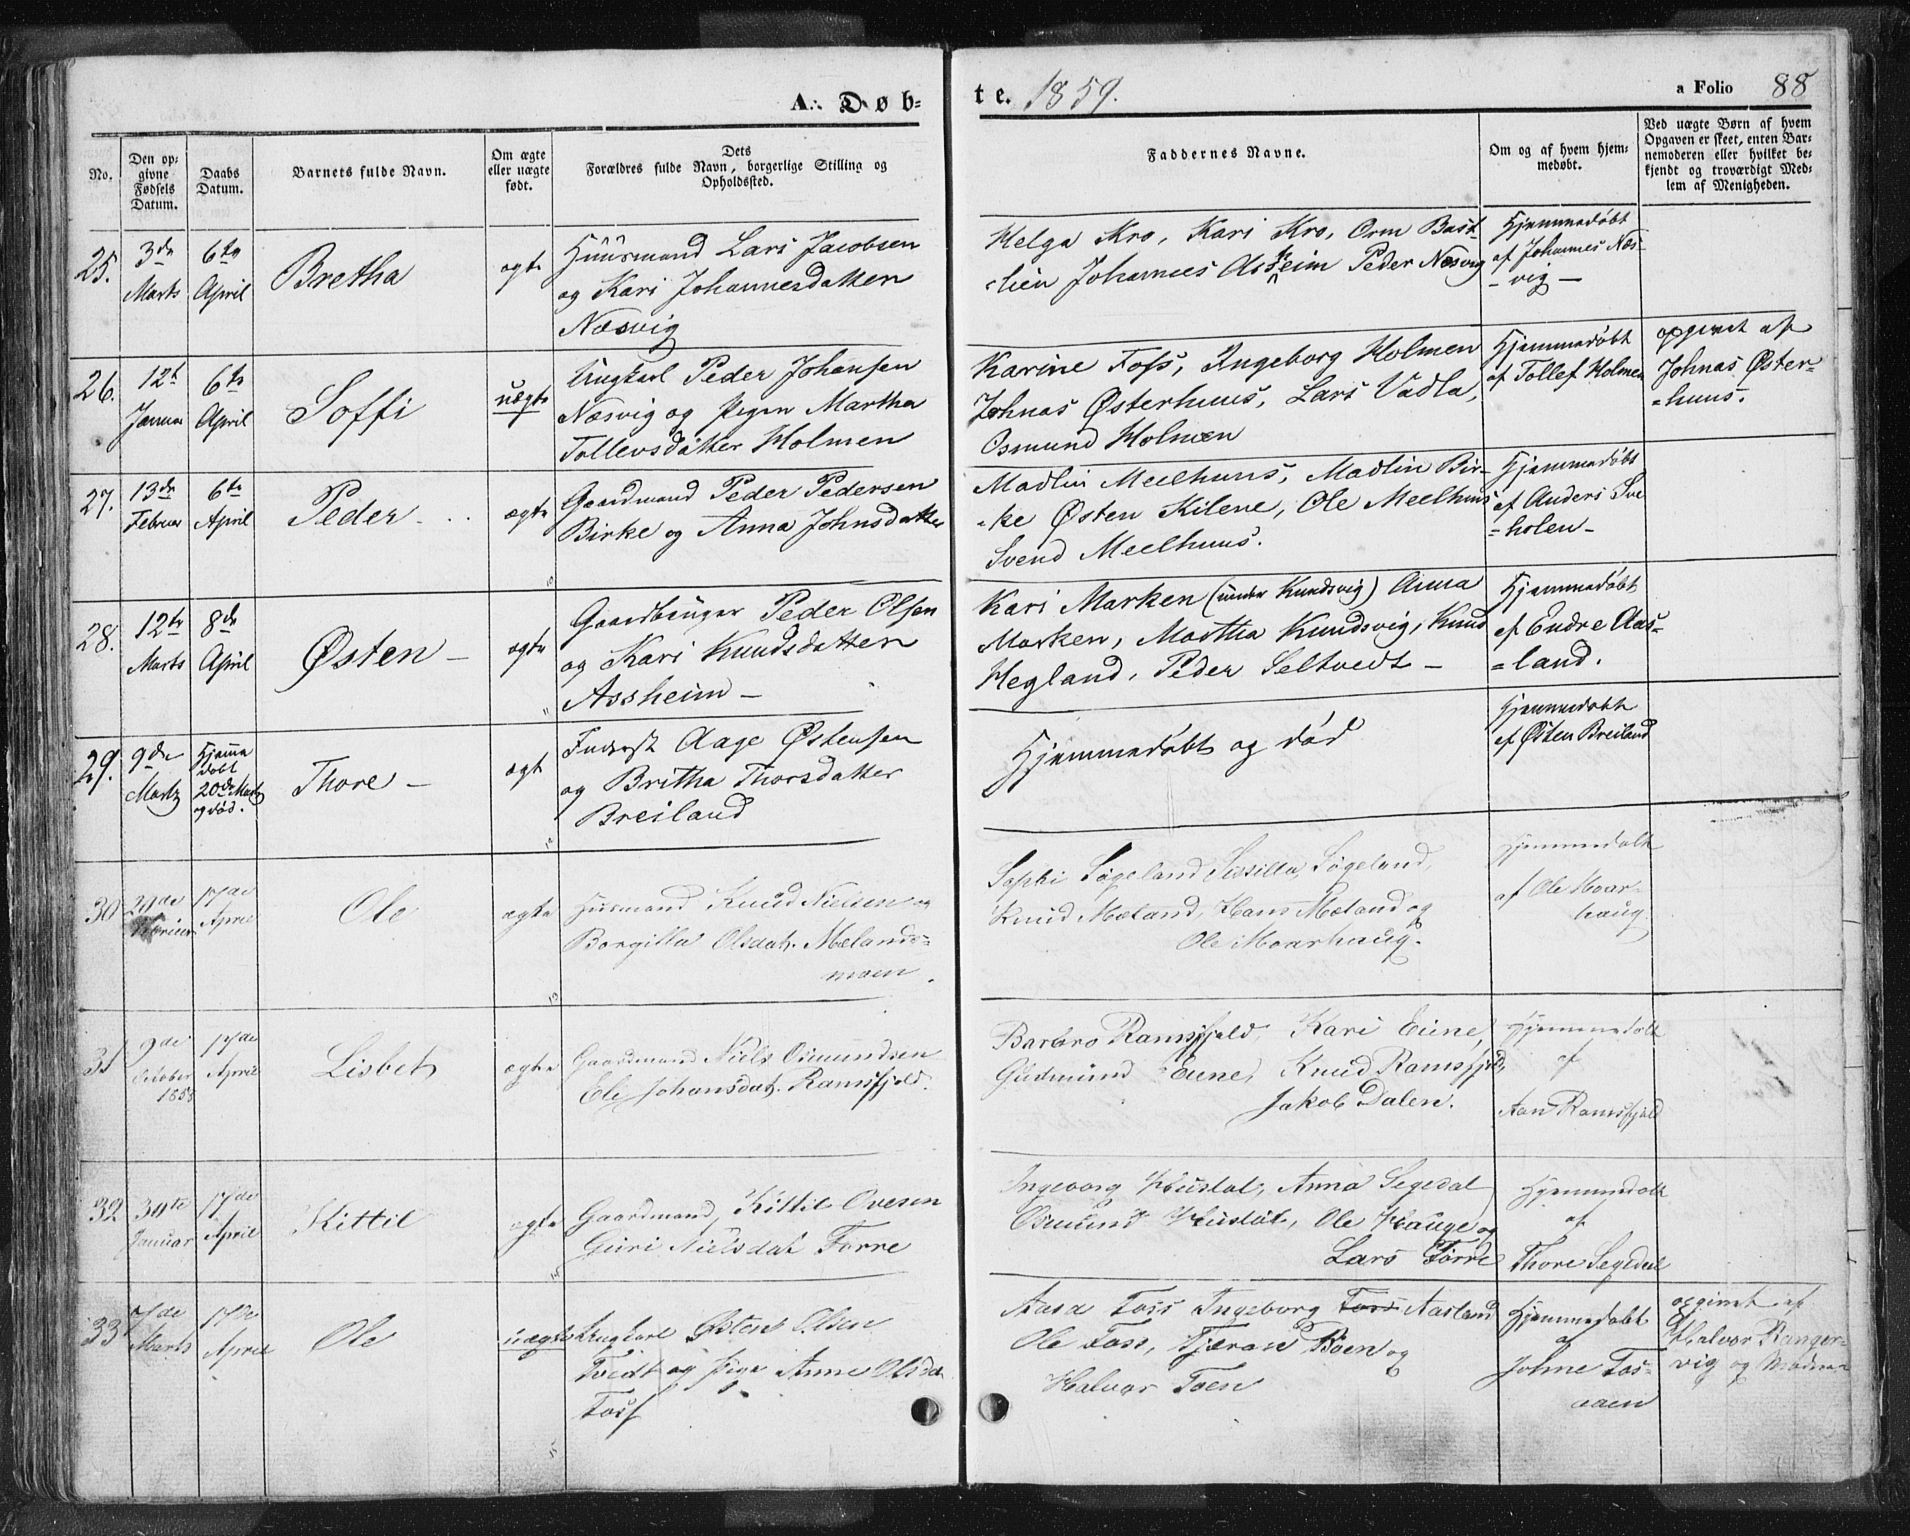 A. Døb-
te. 1859.
a Folio 88
No.
Den op-
givne
Fødsels
Datum.
Daabs
Datum.
Barnets fulde Navn.
Om ægte
eller uægte
født.
Dets
Forældres fulde Navn, borgerlige Stilling og
Opholdssted.
Faddernes Navne.
Om og af hvem hjem-
medøbt.
Ved uægte Børn af hvem
Opgaven er skeet, enten Bar-
nemoderen eller hvilket be-
kjendt og troværdigt Med-
lem af Menigheden.
25.
3de
Marts
6te
April
Bretha
ægte
Huusmand Lars Jacobsen
og Kari Johannesdatter
Næsvig
Helga Kro, Kari Kro, Orm Bast-
-lien Johannes Assheim Peder Næsvig
Hjemmedøbt
af Johannes Næs-
-vig-
26.
12te
Januar
6te
April
Soffi
uægte
Ungkarl Peder Johansen
Næsvig og Pigen Martha
Tollevsdatter Holmen
Karine Foss, Ingeborg Holmen
Johnas Østerhuus, Lars Vadla,
Osmund Holmen
Hjemmedøbt
af Tollef Holmen
opgivet af
Johnas Øster-
=huus.
27.
13de
Februar
6te
April
Peder
ægte
Gaardmand Peder Pedersen
Birke og Anna Johnsdatter
Madlin Meelhuus, Madlin Bir-
-ke Østen Kilene, Ole Meelhuus
Svend Meelhuus.
Hjemmedøbt
af Anders Sve
=holen-
28.
12te
Marts
8de
April
Østen -
ægte
Gaardbruger Peder Olsen
og Kari Knudsdatter
Assheim -
Kari Marken (under Kundsvig) Anna
Marken, Martha Kundsvig, Knud
Hegland, Peder Seltvedt -
Hjemmedøbt
af Endre Aas-
=land.
29.
9de
Marts
Hjemme
døbt
20de Marts
og død.
Thore -
ægt
Inderst Aage Østensen
og Britha Thorsdatter
Breiland
Hjemmedøbt og død
Hjemmedøbt
af Østen Breiland
30
29de
Februar
17de
April
Ole
ægte
Huusmand Knud Nielsen og
Borgilla Olsdat. Mælands-
moen
Sophi Søgeland, Sissilla Søgeland,
Knud Mæland, Hans Mæland og
Ole Moarhaug.
Hjemmedøbt
af Ole Moar-
haug
31
9de
October
1858
17de
April
Lisbet
ægte
Gaardmand Niels Osmundsen
Ele Johansdat. Ramsfjeld.
Barbro Ramsfjeld, Kari Eiine,
Gudmund Eiine, Knud Ramsfjeld,
Jakob Dalen.
Hjemmedøbt
af
Aan Ramsfjeld
32
30te
Januar
17de
April
Kittil
ægte
Gaardmand Kittil Ovesen
Guri Nielsdat Førre
Ingeborg Hustøt, Anna Segedal
Osmund Hustøt, Ole Hauge og
Lars Førre
Hjemmedøbt
af
Thore Segedal
33
7de
Marts
17de
April
Ole
uægte
Ungkarl Østen Olsen
Tvedt og Pige Anne Olsdat
Foss
Aasa Foss Ingeborg Foss Aarland
Ole Foss, Tjæran Bøen og
Halvor Foen
Hjemmedøbt
af
Johne Fos-
aaen
opgivet af
Halvor Ranger-
vig og Moderen